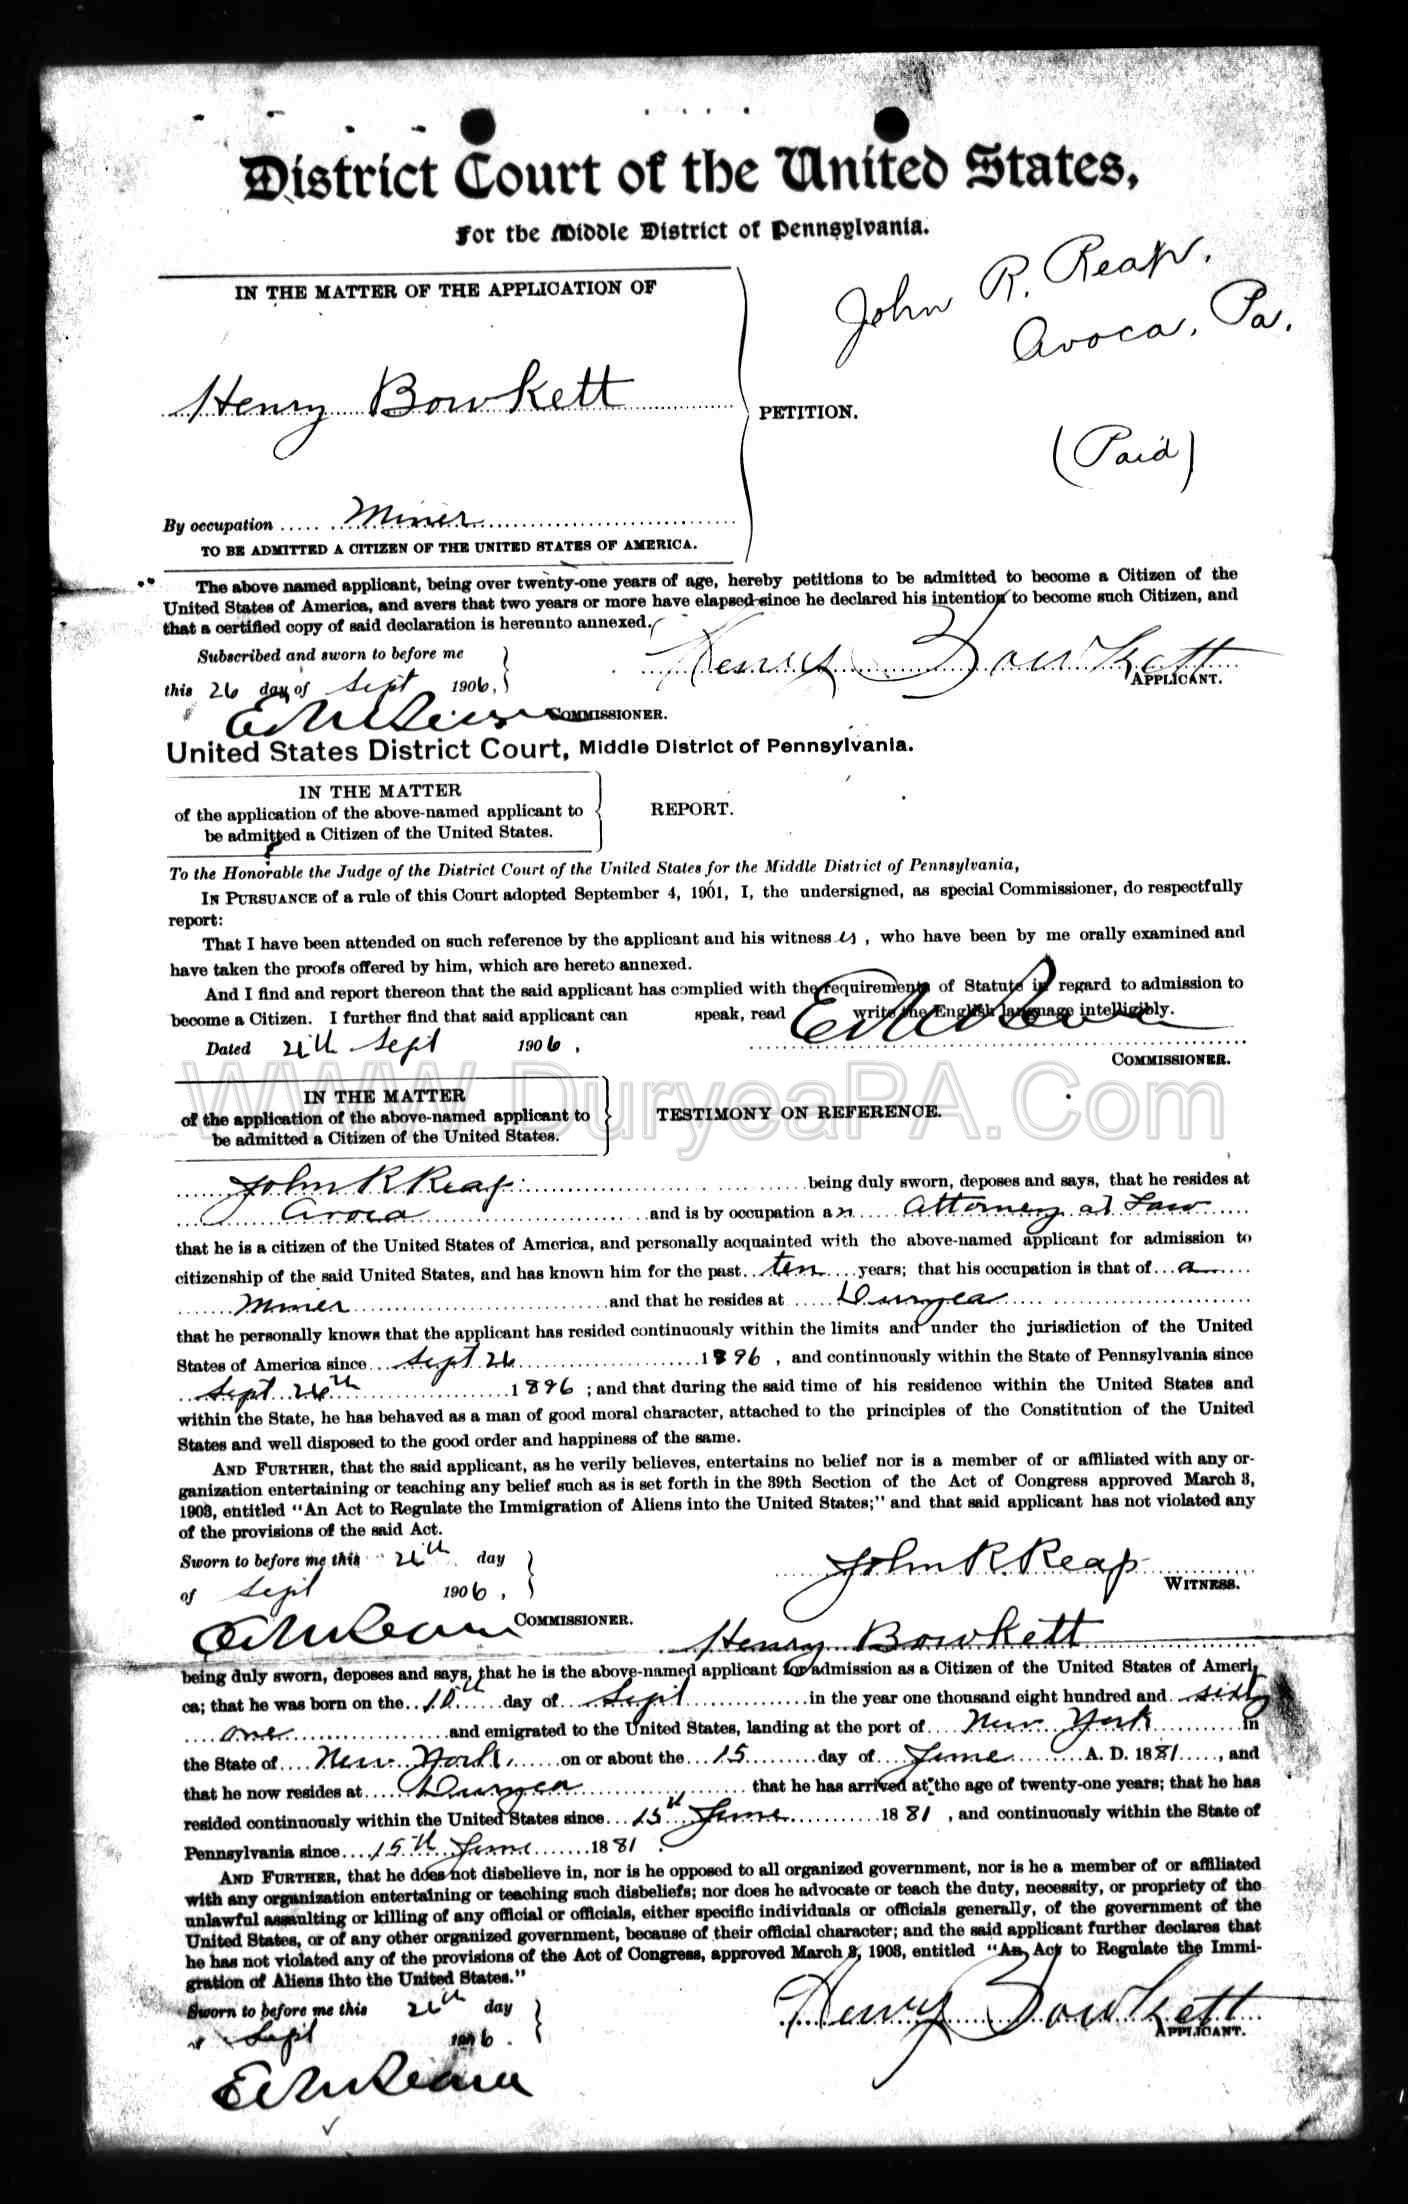 District Court of the United States,
For the Middle District of Pennsylvania.
John R. Reap,
Avoca, Pa.
IN THE MATTER OF THE APPLICATION OF
Henry Bowkett
PETITION.
(Paid)
By occupation Miner
TO BE ADMITTED A CITIZEN OF THE UNITED STATES OF AMERICA.
The above named applicant, being over twenty-one years of age, hereby petitions to be admitted to become a Citizen of the
United States of America, and avers that two years or more have elapsed since he declared his intention to become such Citizen, and
that a certified copy of said declaration is hereunto annexed.
Subscribed and sworn to before me
this 26 day of Sept 1906,
Henry Bowkett
APPLICANT.
COMMISSIONER.
United States District Court, Middle District of Pennsylvania.
IN THE MATTER
of the application of the above-named applicant to
be admitted a Citizen of the United States.
REPORT.
To the Honorable the Judge of the District Court of the United States for the Middle District of Pennsylvania,
IN PURSUANCE of a rule of this Court adopted September 4, 1901, I, the undersigned, as special Commissioner, do respectfully
report:
That I have been attended on such reference by the applicant and his witness es, who have been by me orally examined and
have taken the proofs offered by him, which are hereto annexed.
And I find and report thereon that the said applicant has complied with the requirements of Statute in regard to admission to
become a Citizen. I further find that said applicant can speak, read write the English language intelligibly.
Dated 26th Sept 1906,
COMMISSIONER.
WWW.DuryeaPA.Com
IN THE MATTER
of the application of the above-named applicant to
be admitted a Citizen of the United States.
TESTIMONY ON REFERENCE.
John R Reap being duly sworn, deposes and says, that he resides at
Avoca and is by occupation an Attorney at Law
that he is a citizen of the United States of America, and personally acquainted with the above-named applicant for admission to
citizenship of the said United States, and has known him for the past ten years; that his occupation is that of a
Miner and that he resides at Duryea
that he personally knows that the applicant has resided continuously within the limits and under the jurisdiction of the United
States of America since Sept 26 1896, and continuously within the State of Pennsylvania since
Sept 26th 1896; and that during the said time of his residence within the United States and
within the State, he has behaved as a man of good moral character, attached to the principles of the Constitution of the United
States and well disposed to the good order and happiness of the same.
AND FURTHER, that the said applicant, as he verily believes, entertains no belief nor is a member of or affiliated with any or-
ganization entertaining or teaching any belief such as is set forth in the 39th Section of the Act of Congress approved March 3,
1903, entitled "An Act to Regulate the Immigration of Aliens into the United States;" and that said applicant has not violated any
of the provisions of the said Act.
Sworn to before me this 26th day
of Sept 1906,
John R. Reap
WITNESS.
COMMISSIONER.
Henry Bowkett
being duly sworn, deposes and says, that he is the above-named applicant for admission as a Citizen of the United States of Ameri-
ca; that he was born on the 10th day of Sept in the year one thousand eight hundred and sixty
one and emigrated to the United States, landing at the port of New York in
the State of New York, on or about the 15 day of June A. D. 1881, and
that he now resides at Duryea that he has arrived at the age of twenty-one years; that he has
resided continuously within the United States since 15th June 1881, and continuously within the State of
Pennsylvania since 15th June 1881.
AND FURTHER, that he does not disbelieve in, nor is he opposed to all organized government, nor is he a member of or affiliated
with any organization entertaining or teaching such disbeliefs; nor does he advocate or teach the duty, necessity, or propriety of the
unlawful assaulting or killing of any official or officials, either specific individuals or officials generally, of the government of the
United States, or of any other organized government, because of their official character; and the said applicant further declares that
he has not violated any of the provisions of the Act of Congress, approved March 3, 1903, entitled "An Act to Regulate the Immi-
gration of Aliens into the United States."
Sworn to before me this 26th day
Sept 1906.
Henry Bowkett
APPLICANT.